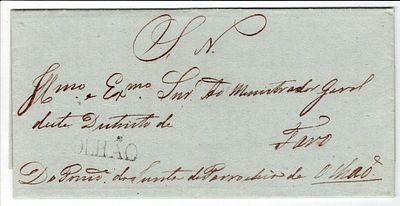 S. N.
Illmo. e Exmo. Snr. Administrador Geral
deste Districto de
Faro
OLHÃO
Do Presid. da Junta de Parrochia de Olhaõ